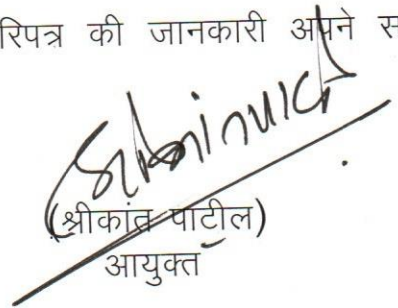 रिपत्र की जानकारी अपने स
(श्रीकांत पाटील)
आयुक्त